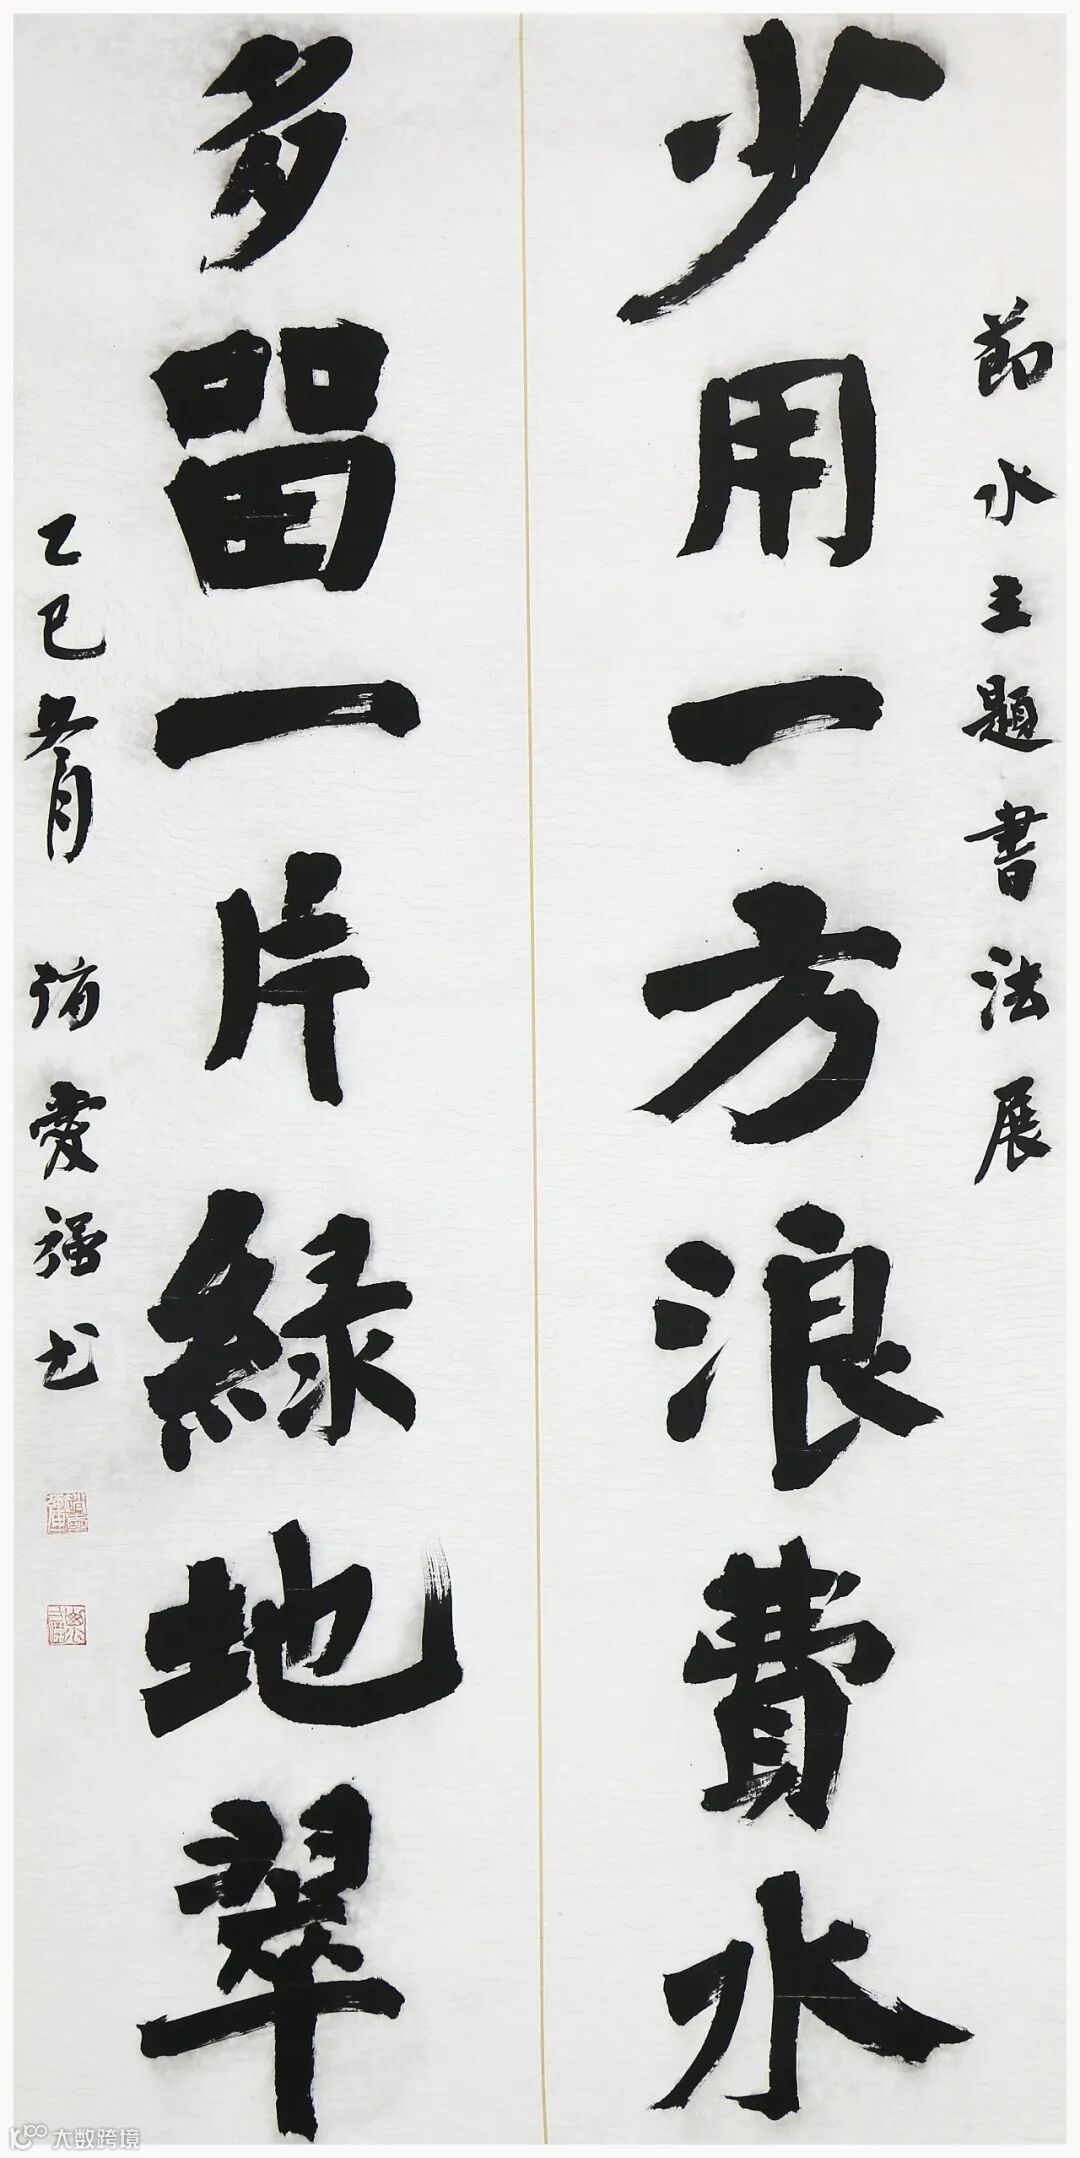 節水主題書法展
少用一方浪費水
多留一片緑地翠
乙巳五月 愛強书
大数跨境